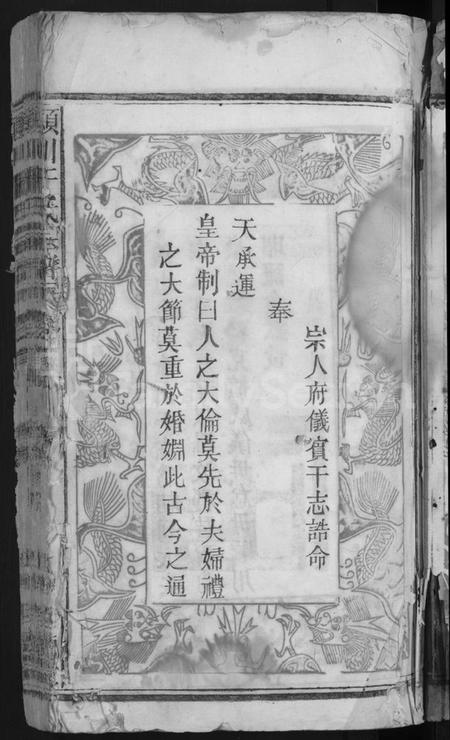 宗人府儀賓干志誥命
奉
天承運
皇帝制曰人之大倫莫先於夫婦禮
之大節莫重於婚姻此古今之通